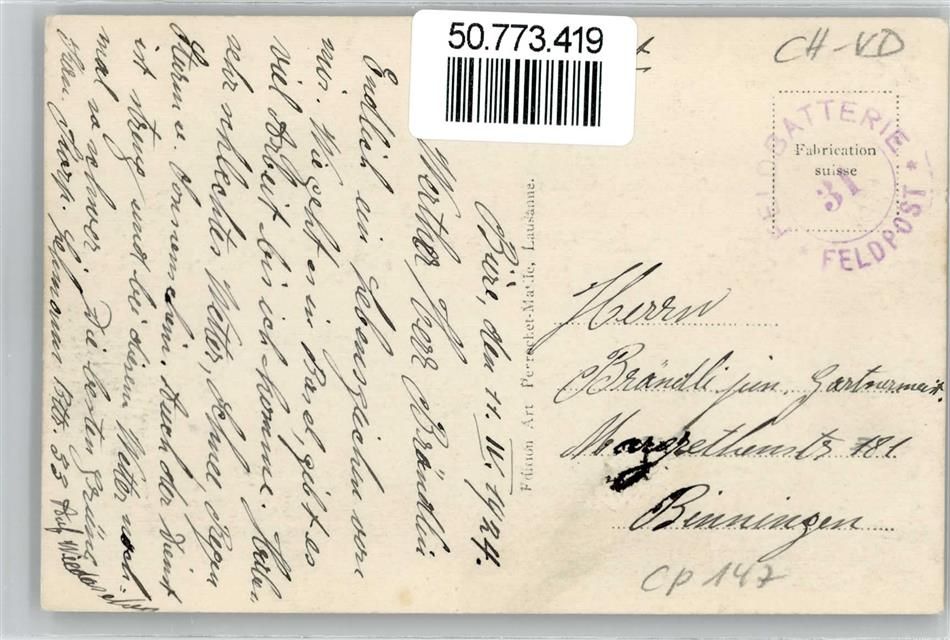 50.773.419
CH-VD
FELDBATTERIE
31
* FELDPOST *
Fabrication
suisse
Edition Art Perrochet-Matile, Lausanne.
Bière, den 11. IV. 1924.
Werther Herr Brändli
Endlich ein Lebenszeichen von
mir. Wie geht es in Basel, gibt es
viel Arbeit bis ich komme. Haben
sehr schlechtes Wetter, Schnee, Regen
Sturm u. Sonnenschein. Auch der Dienst
ist streng und bei diesem Wetter noch-
mal so schwer. Die besten Grüsse
Btt. 33 Auf Wiedersehen
Herrn
Brändli jun. Gärtnermeist.
Margrethenstr 181
Binningen
CP 147